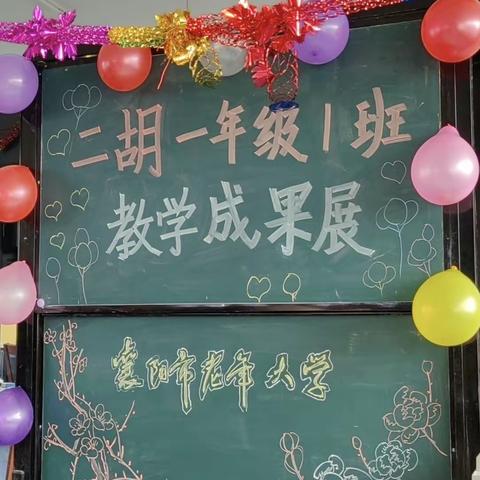 二胡一年级1班
教学成果展
襄阳市老年大学